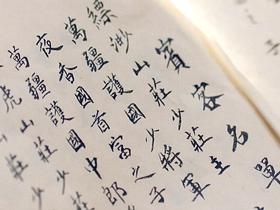 賓客名單
縹緲山莊少莊主
萬疆護國少將軍
夜香國首富之子
萬疆護國中郎
虎山莊少